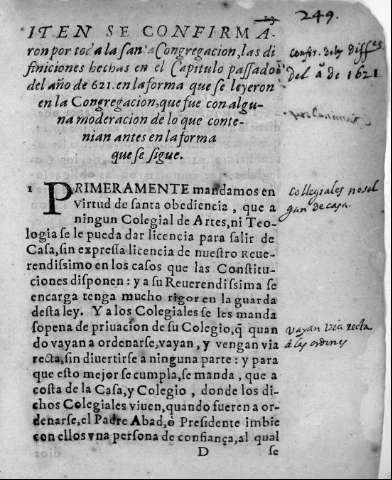 249.
ITEN SE CONFIRMA-
ron por toda la santa Congregacion, las di
finiciones hechas en el Capitulo passado
del año de 621. en la forma que se leyeron
en la Congregacion, que fue con algu-
na moderacion de lo que conte-
nian antes en la forma
que se sigue.
del a de 1621
1 PRIMERAMENTE mandamos en
virtud de santa obediencia, que a
ningun Colegial de Artes, ni Teo-
logia se le pueda dar licencia para salir de
Casa, sin expressa licencia de nuestro Reue-
rendissimo en los casos que las Constitu-
ciones disponen: y a su Reuerendissima se
encarga tenga mucho rigor en la guarda
desta ley. Y a los Colegiales se les manda
sopena de priuacion de su Colegio, q̃ quan
do vayan a ordenarse, vayan, y vengan via
recta, sin diuertirse a ninguna parte: y para
que esto mejor se cumpla, se manda, que a
costa de la Casa, y Colegio, donde los di-
chos Colegiales viuen, quando fueren a or-
denarse, el Padre Abad, ò Presidente imbie
con ellos vna persona de confiança, al qual
D se
Collegiales no sal
gan de casa.
vayan via recta
a las ordenes